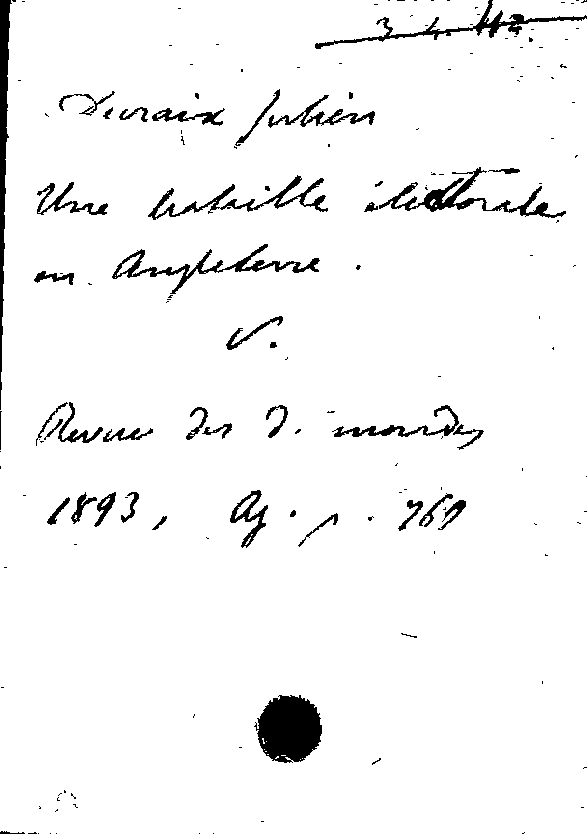 3. 4. 42.
Decraix Julien
Une bataille électorale
en Angleterre.
v.
Revue des d. mondes
1893, Ag. p.